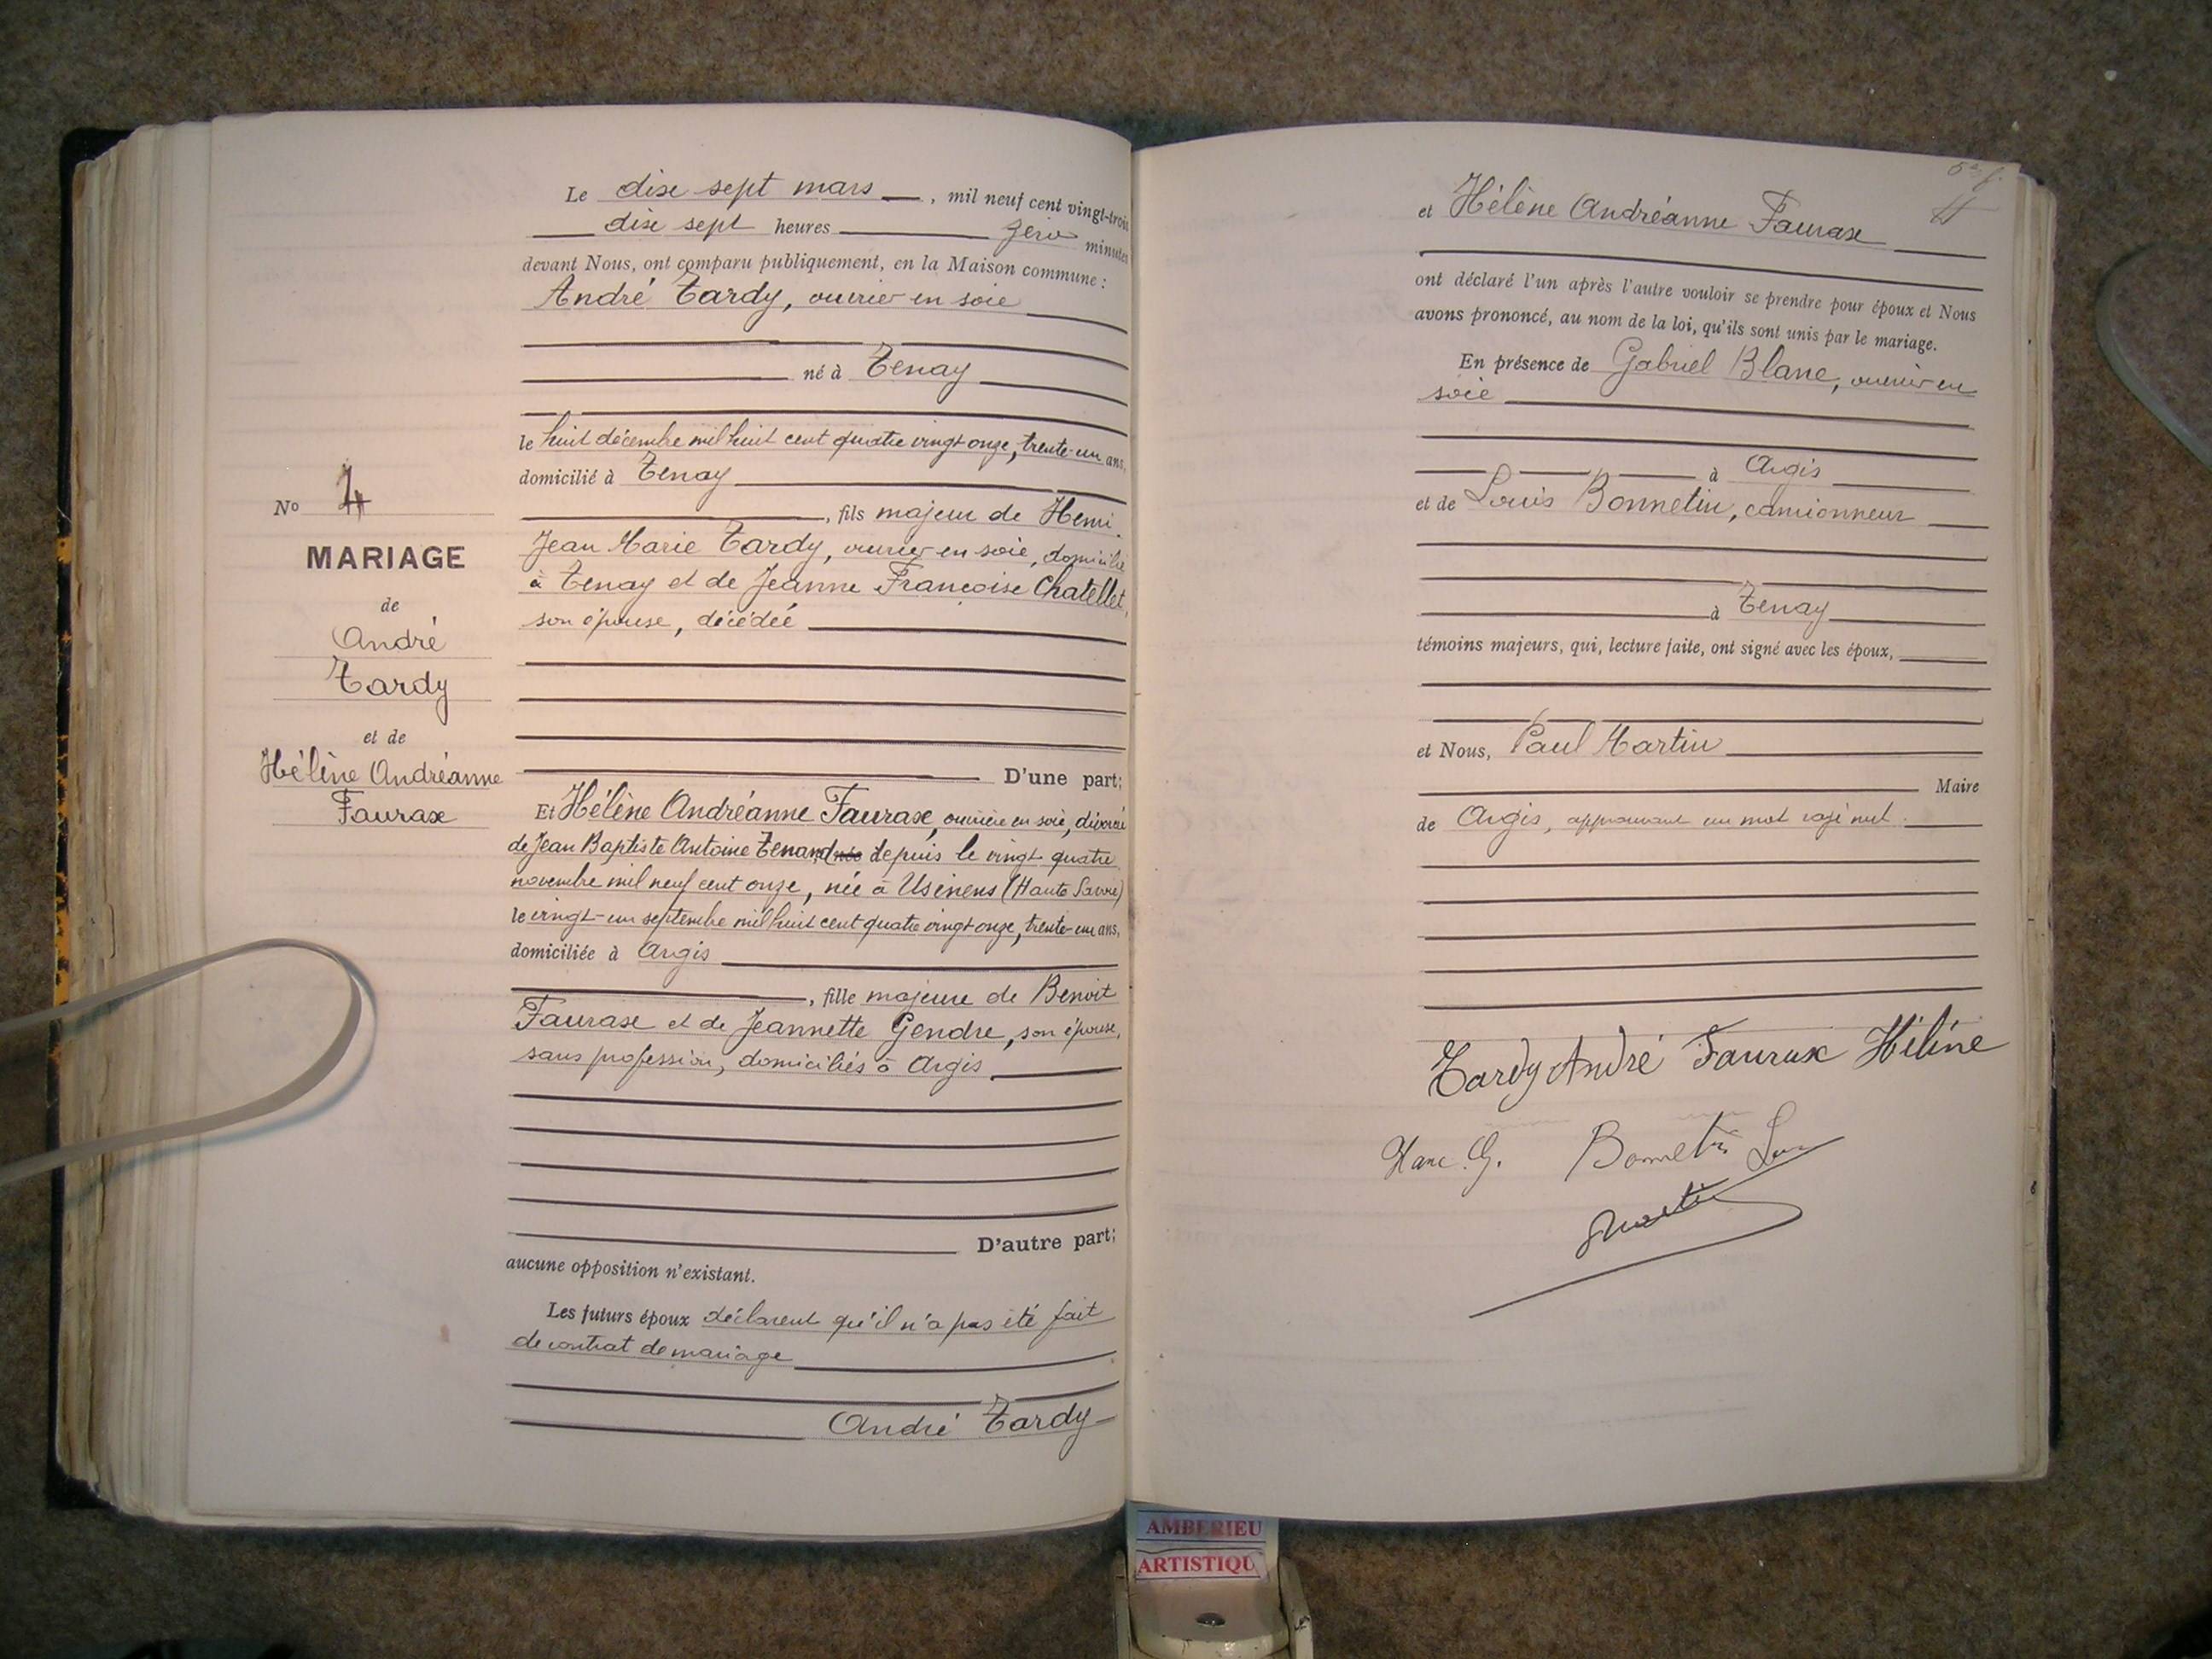 Le dix sept mars, mil neuf cent vingt-trois
dix sept heures zéro minutes
devant Nous, ont comparu publiquement, en la Maison commune :
André Tardy, ouvrier en soie
né à Tenay
le huit décembre mil huit cent quatre vingt onze, trente-un ans,
domicilié à Tenay
, fils majeur de Henri
Jean Marie Tardy, ouvrier en soie, domicilié
à Tenay et de Jeanne Françoise Chatellet,
son épouse, décédée
No 4
MARIAGE
de
André
Tardy
et de
Hélène Andréanne
Faurax
D'une part;
Et Hélène Andréanne Faurax, ouvrière en soie, divorcée
de Jean Baptiste Antoine Tenand née depuis le vingt quatre
novembre mil neuf cent onze, née à Usinens (Haute Savoie)
le vingt-un septembre mil huit cent quatre vingt onze, trente-un ans,
domiciliée à Argis
, fille majeure de Benoit
Faurax et de Jeannette Gendre, son épouse,
sans profession, domiciliés à Argis
D'autre part;
aucune opposition n'existant.
Les futurs époux déclarent qu'il n'a pas été fait
de contrat de mariage
André Tardy
et Hélène Andréanne Faurax
ont déclaré l'un après l'autre vouloir se prendre pour époux et Nous
avons prononcé, au nom de la loi, qu'ils sont unis par le mariage.
En présence de Gabriel Blanc, ouvrier en
soie
à Argis
et de Louis Bonnetin, camionneur
à Tenay
témoins majeurs, qui, lecture faite, ont signé avec les époux,
et Nous, Paul Martin
Maire
de Argis, approuvant un mot rayé nul.
Tardy André Faurax Hélène
G. Bonnetin
Martin
AMBERIEU
ARTISTIQU